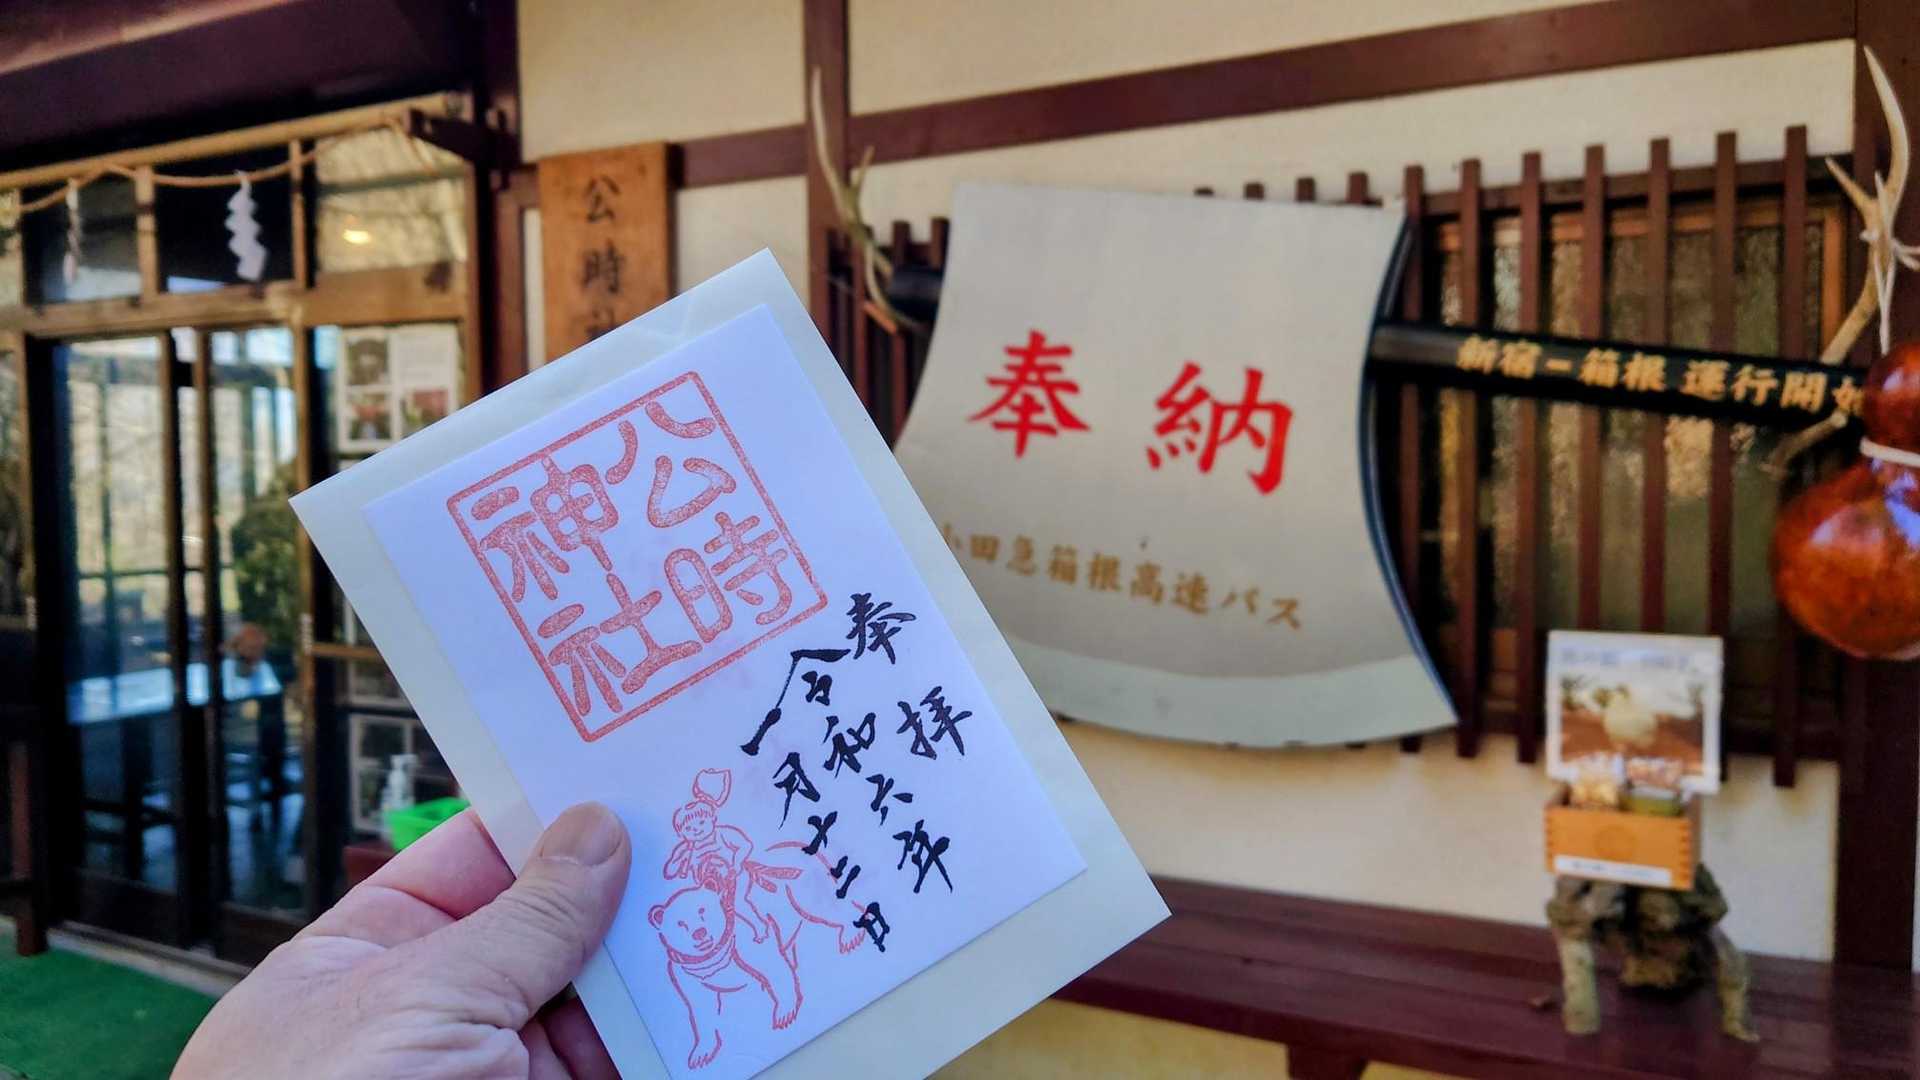 公時神社
奉拝
令和六年
一月十二日
公時神
奉納
小田急箱根高速バス
新宿−箱根 運行開始